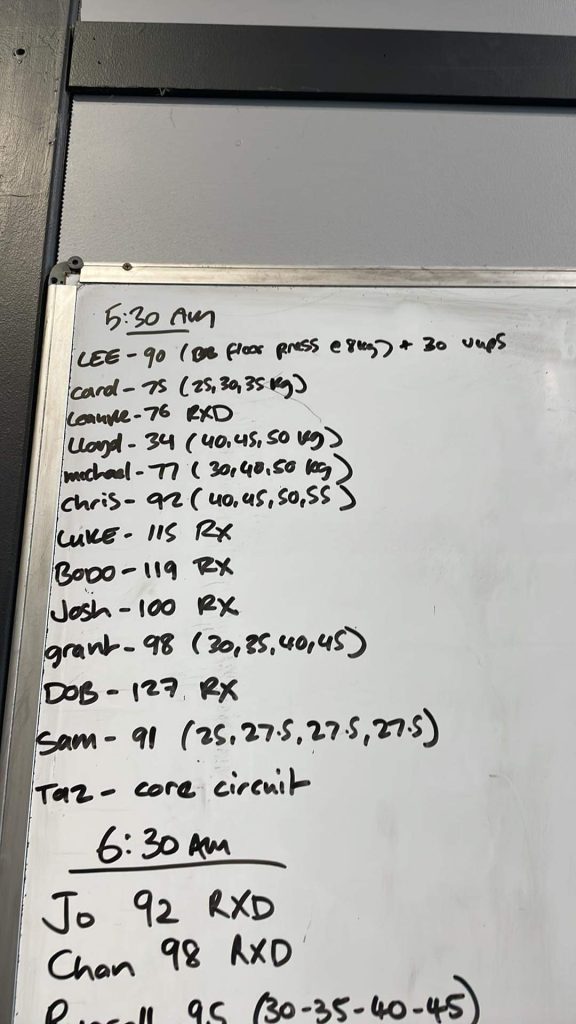 5:30 AM
LEE - 90 (DB floor press @ 8kg) + 30 vups
carol - 75 (25,30,35 kg)
Leanne - 76 RXD
Lloyd - 34 (40,45,50 kg)
michael - 77 (30,40,50 kg)
Chris - 92 (40,45,50,55)
LUKE - 115 RX
BODO - 119 RX
Josh - 100 RX
grant - 98 (30,35,40,45)
DOB - 127 RX
Sam - 91 (25,27.5,27.5,27.5)
Taz - core circuit
6:30 AM
Jo 92 RXD
Chan 98 RXD
Russell 95 (30-35-40-45)